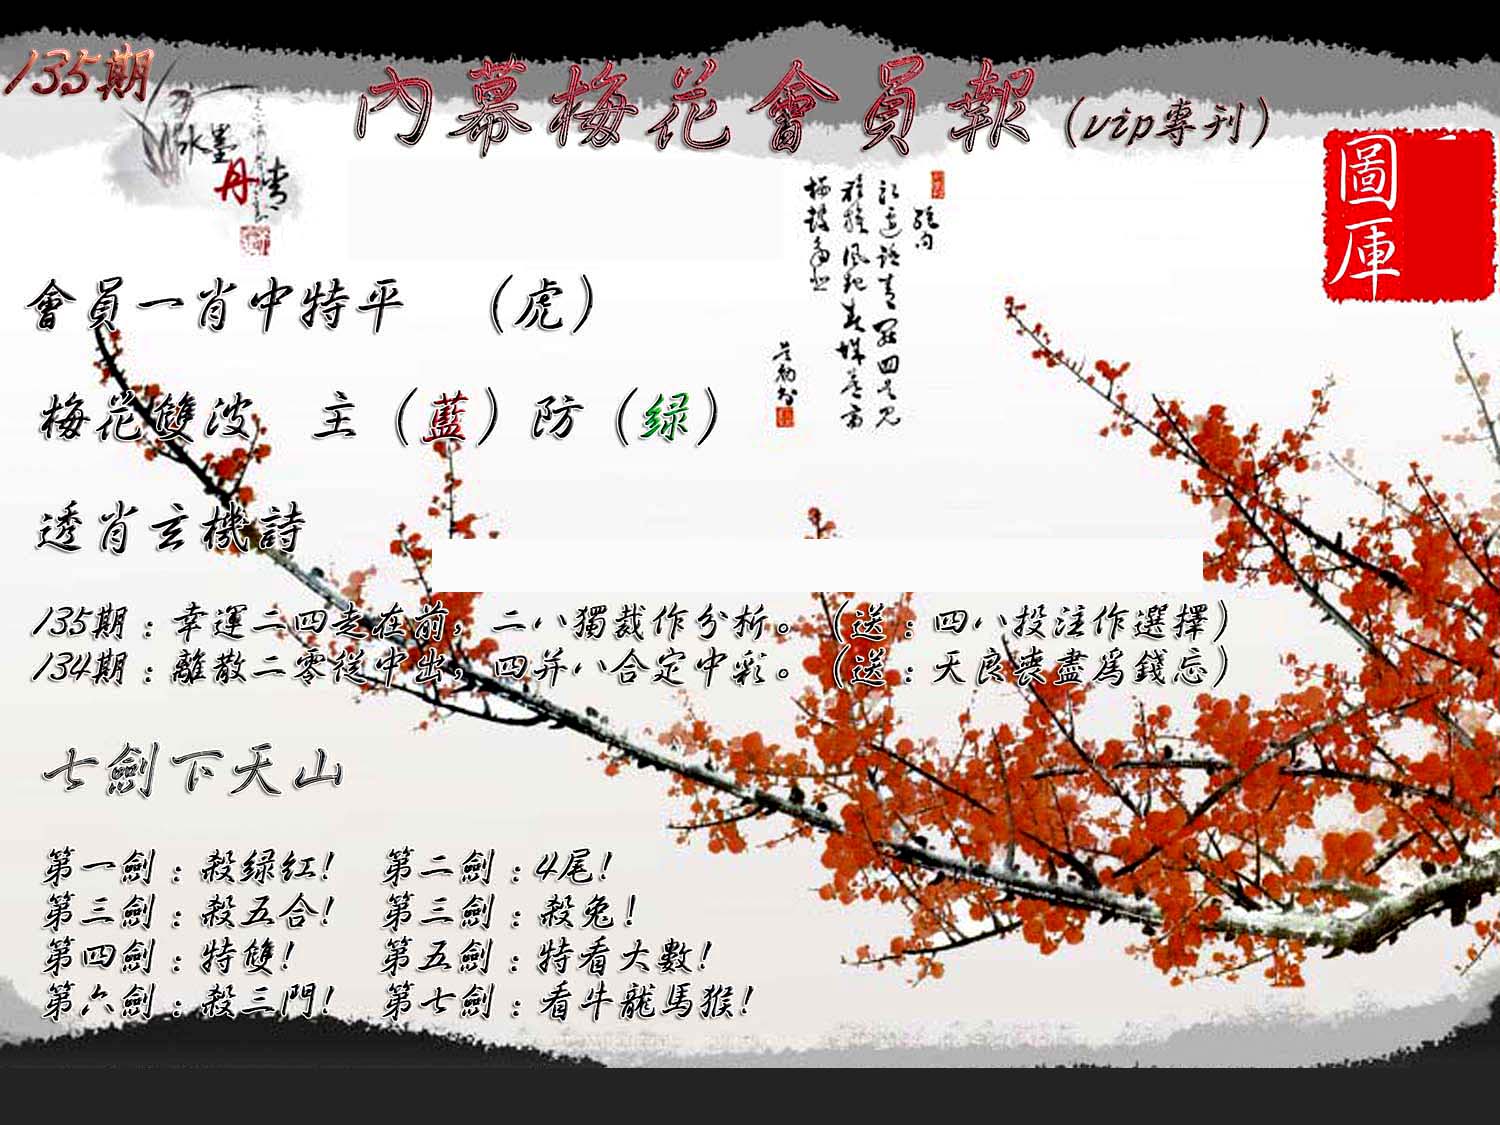 135期
內幕梅花會員報（vip專刊）
水墨
丹青
圖庫
會員一肖中特平 （虎）
梅花雙波 主（藍）防（绿）
透肖玄機詩
135期：幸運二四走在前，二八獨裁作分析。（送：四八投注作選擇）
134期：離散二零從中出，四并八合定中彩。（送：天良喪盡為錢忘）
七劍下天山
第一劍：殺绿红！ 第二劍：4尾！
第三劍：殺五合！ 第三劍：殺兔！
第四劍：特雙！ 第五劍：特看大數！
第六劍：殺三門！ 第七劍：看牛龍馬猴！